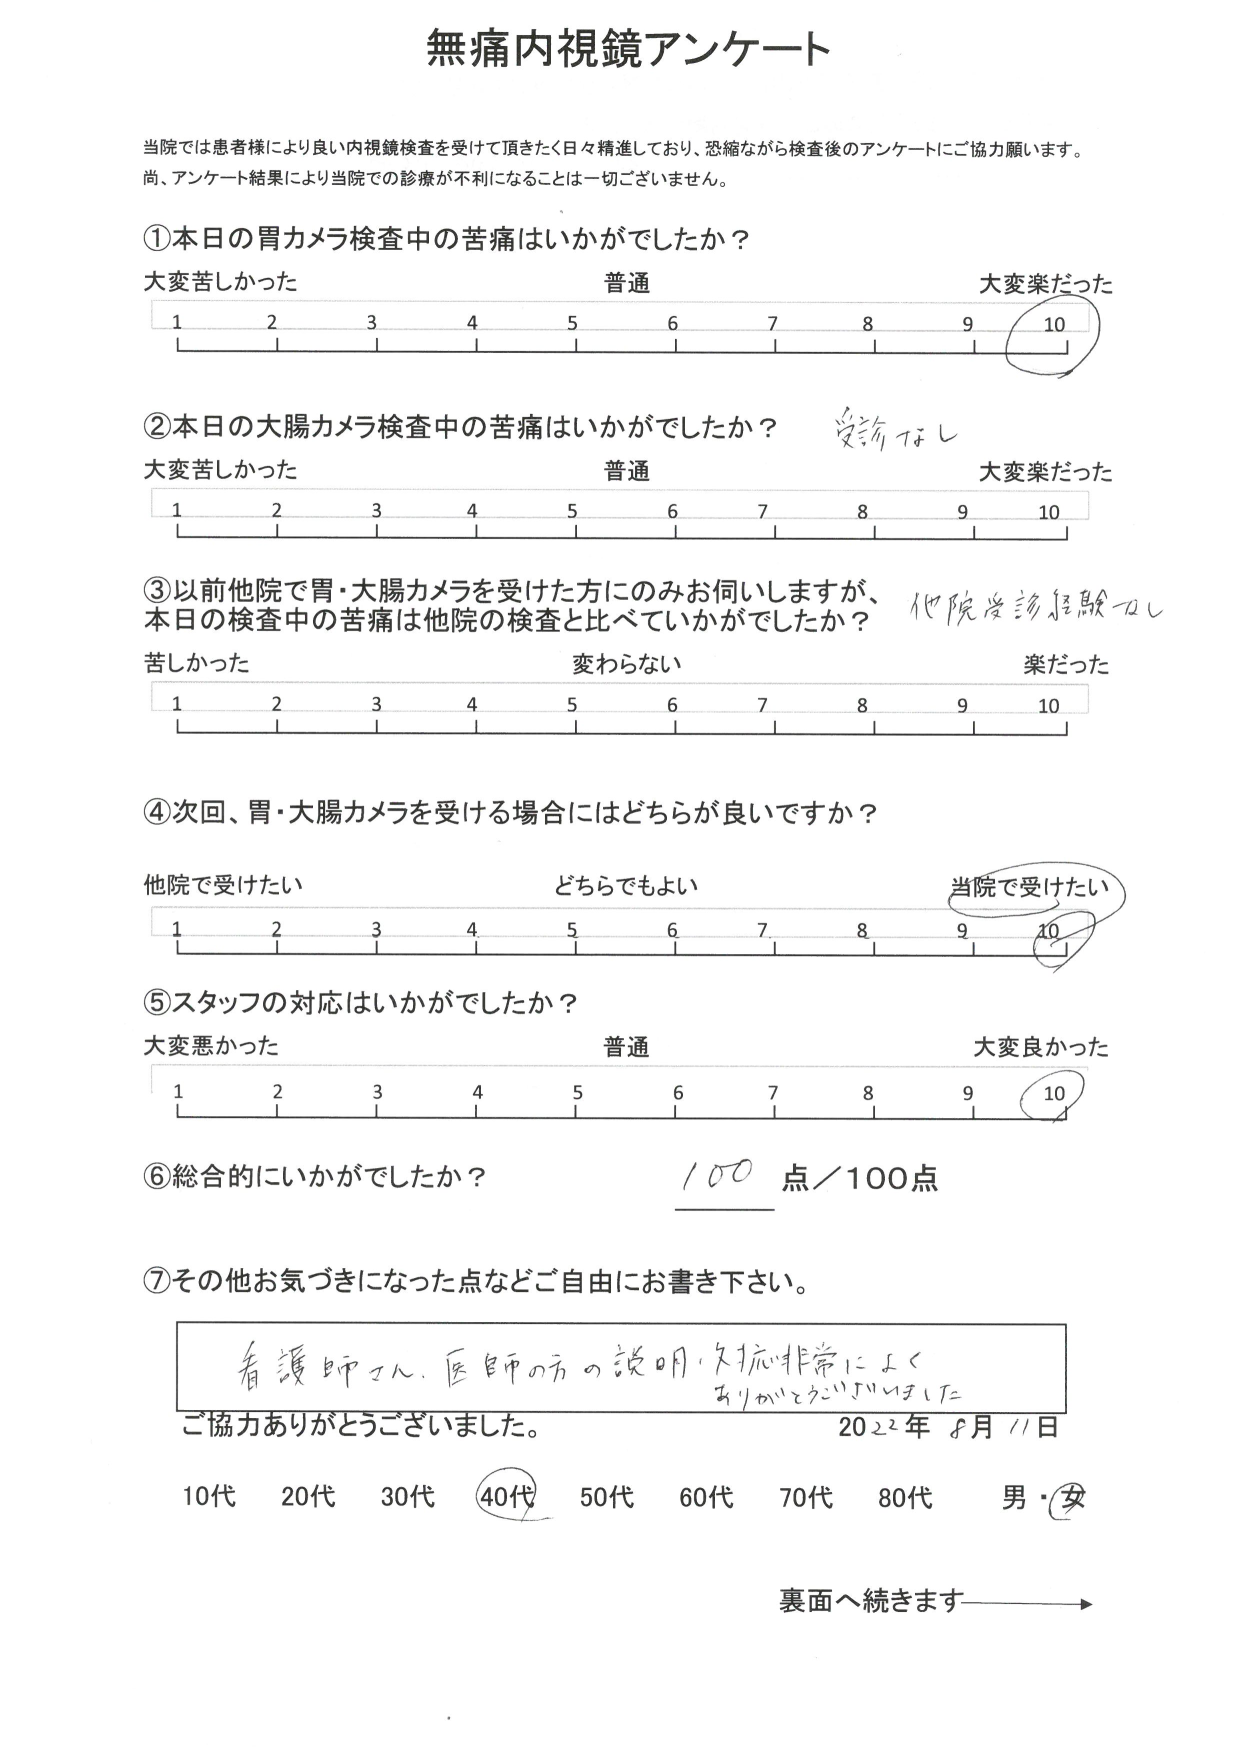 無痛内視鏡アンケート
当院では患者様により良い内視鏡検査を受けて頂きたく日々精進しており、恐縮ながら検査後のアンケートにご協力願います。
尚、アンケート結果により当院での診療が不利になることは一切ございません。
①本日の胃カメラ検査中の苦痛はいかがでしたか？
大変苦しかった 普通 大変楽だった
1 2 3 4 5 6 7 8 9 10
②本日の大腸カメラ検査中の苦痛はいかがでしたか？ 受診なし
大変苦しかった 普通 大変楽だった
1 2 3 4 5 6 7 8 9 10
③以前他院で胃・大腸カメラを受けた方にのみお伺いしますが、
本日の検査中の苦痛は他院の検査と比べていかがでしたか？ 他院受診経験なし
苦しかった 変わらない 楽だった
1 2 3 4 5 6 7 8 9 10
④次回、胃・大腸カメラを受ける場合にはどちらが良いですか？
他院で受けたい どちらでもよい 当院で受けたい
1 2 3 4 5 6 7 8 9 10
⑤スタッフの対応はいかがでしたか？
大変悪かった 普通 大変良かった
1 2 3 4 5 6 7 8 9 10
⑥総合的にいかがでしたか？ 100 点／100点
⑦その他お気づきになった点などご自由にお書き下さい。
看護師さん、医師の方の説明・対応非常によく
ありがとうございました
ご協力ありがとうございました。 2022年 8月 11日
10代 20代 30代 40代 50代 60代 70代 80代 男・女
裏面へ続きます